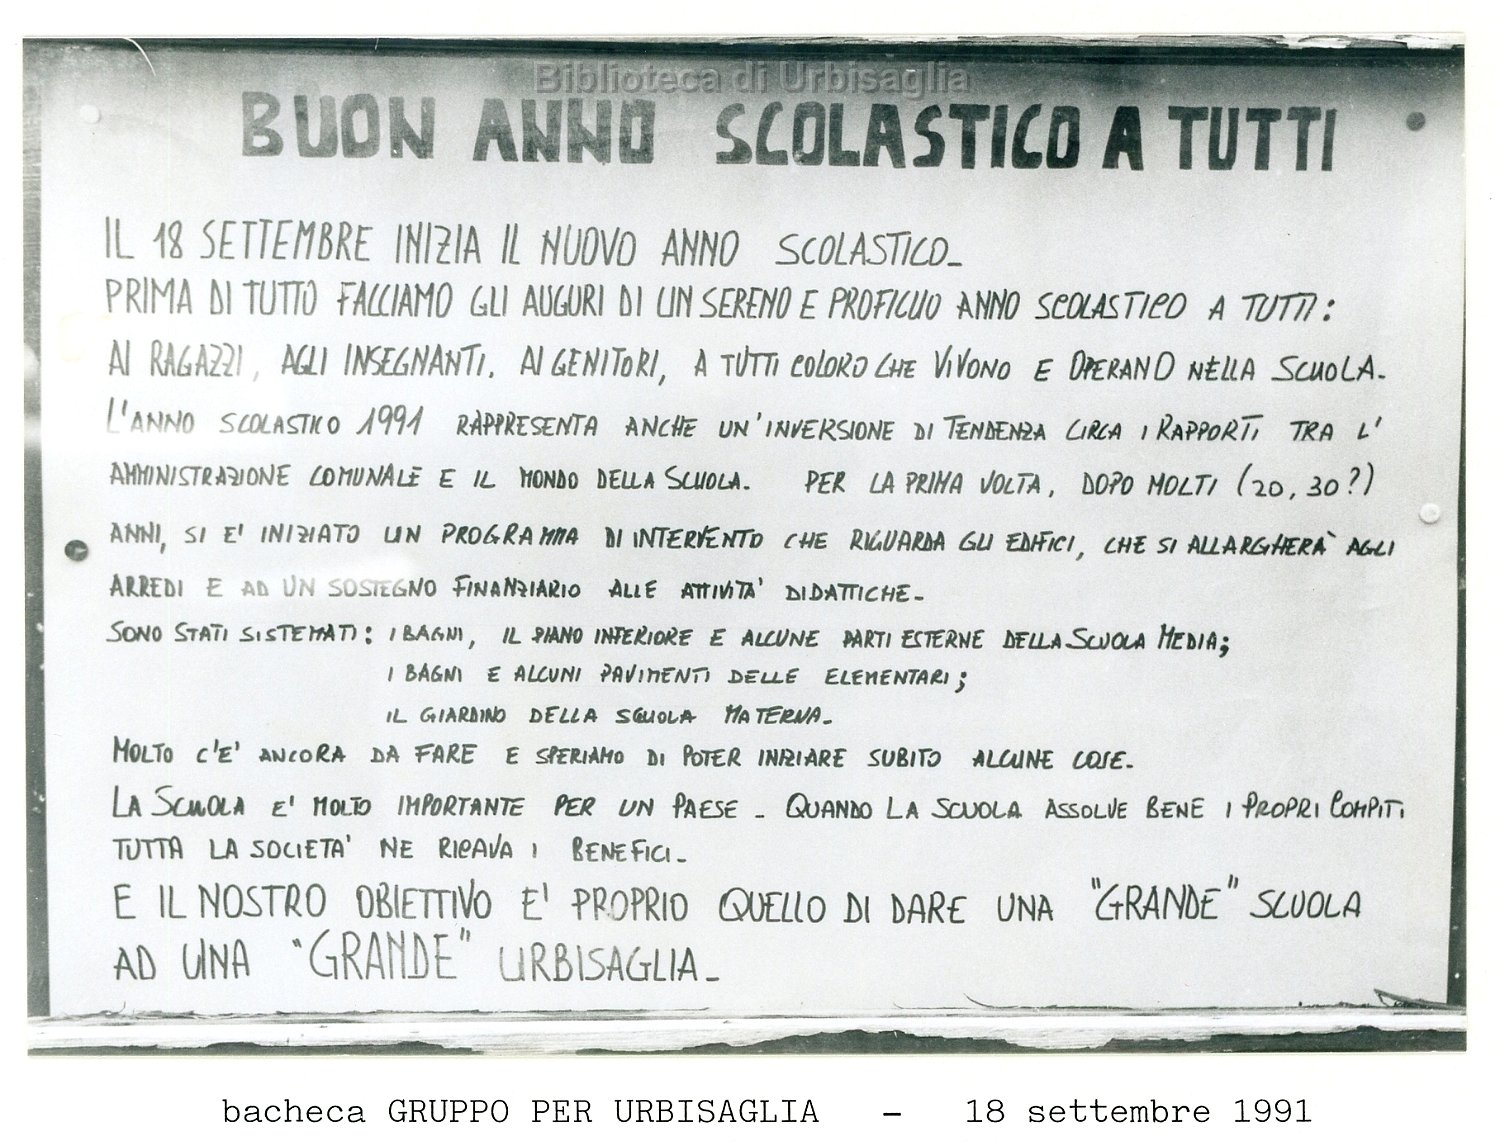 Biblioteca di Urbisaglia
BUON ANNO SCOLASTICO A TUTTI
IL 18 SETTEMBRE INIZIA IL NUOVO ANNO SCOLASTICO_
PRIMA DI TUTTO FACCIAMO GLI AUGURI DI UN SERENO E PROFICUO ANNO SCOLASTICO A TUTTI:
AI RAGAZZI, AGLI INSEGNANTI. AI GENITORI, A TUTTI COLORO CHE VIVONO E OPERANO NELLA SCUOLA.
L'ANNO SCOLASTICO 1991 RAPPRESENTA ANCHE UN'INVERSIONE DI TENDENZA CIRCA I RAPPORTI TRA L'
AMMINISTRAZIONE COMUNALE E IL MONDO DELLA SCUOLA. PER LA PRIMA VOLTA, DOPO MOLTI (20, 30?)
ANNI, SI E' INIZIATO UN PROGRAMMA DI INTERVENTO CHE RIGUARDA GLI EDIFICI, CHE SI ALLARGHERA' AGLI
ARREDI E AD UN SOSTEGNO FINANZIARIO ALLE ATTIVITA' DIDATTICHE_
SONO STATI SISTEMATI: I BAGNI, IL PIANO INFERIORE E ALCUNE PARTI ESTERNE DELLA SCUOLA MEDIA;
I BAGNI E ALCUNI PAVIMENTI DELLE ELEMENTARI;
IL GIARDINO DELLA SCUOLA MATERNA_
MOLTO C'E' ANCORA DA FARE E SPERIAMO DI POTER INIZIARE SUBITO ALCUNE COSE.
LA SCUOLA E' MOLTO IMPORTANTE PER UN PAESE _ QUANDO LA SCUOLA ASSOLVE BENE I PROPRI COMPITI
TUTTA LA SOCIETA' NE RICAVA I BENEFICI_
E IL NOSTRO OBIETTIVO E' PROPRIO QUELLO DI DARE UNA "GRANDE" SCUOLA
AD UNA "GRANDE" URBISAGLIA_
bacheca GRUPPO PER URBISAGLIA - 18 settembre 1991